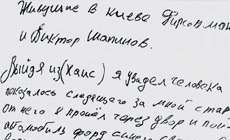 Живущие в Киеве Фирсов Ман
и Виктор Шапинов.
Выйдя из (Ханс) я увидел человека
оказалось следящего за мной стар
от него я прошёл через двор и пой
автомобиль форд синего